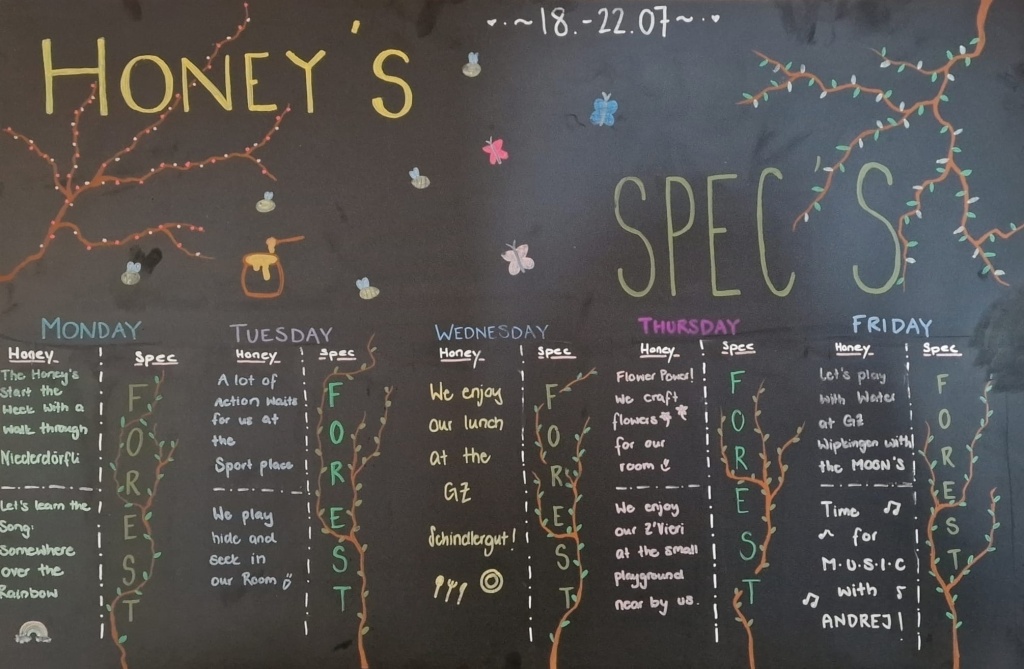 HONEY'S
~18.-22.07~
SPEC'S
MONDAY
Honey
Spec
The Honey's
Start the
Week with a
walk through
Niederdörfli
Let's learn the
Song:
Somewhere
over the
Rainbow
FOREST
TUESDAY
Honey
Spec
A lot of
Action waits
for us at
the
Sport place
We play
hide and
seek in
our Room
FOREST
WEDNESDAY
Honey
Spec
We enjoy
our lunch
at the
GZ
Schindlergut!
FOREST
THURSDAY
Honey
Spec
Flower Power!
We craft
flowers
for our
room
We enjoy
our Z'Vieri
at the small
playground
near by us.
FOREST
FRIDAY
Honey
Spec
Let's play
with Water
at GZ
Wipkingen with
the MOON'S
Time
for
M.U.S.I.C
with
ANDREJ!
FOREST